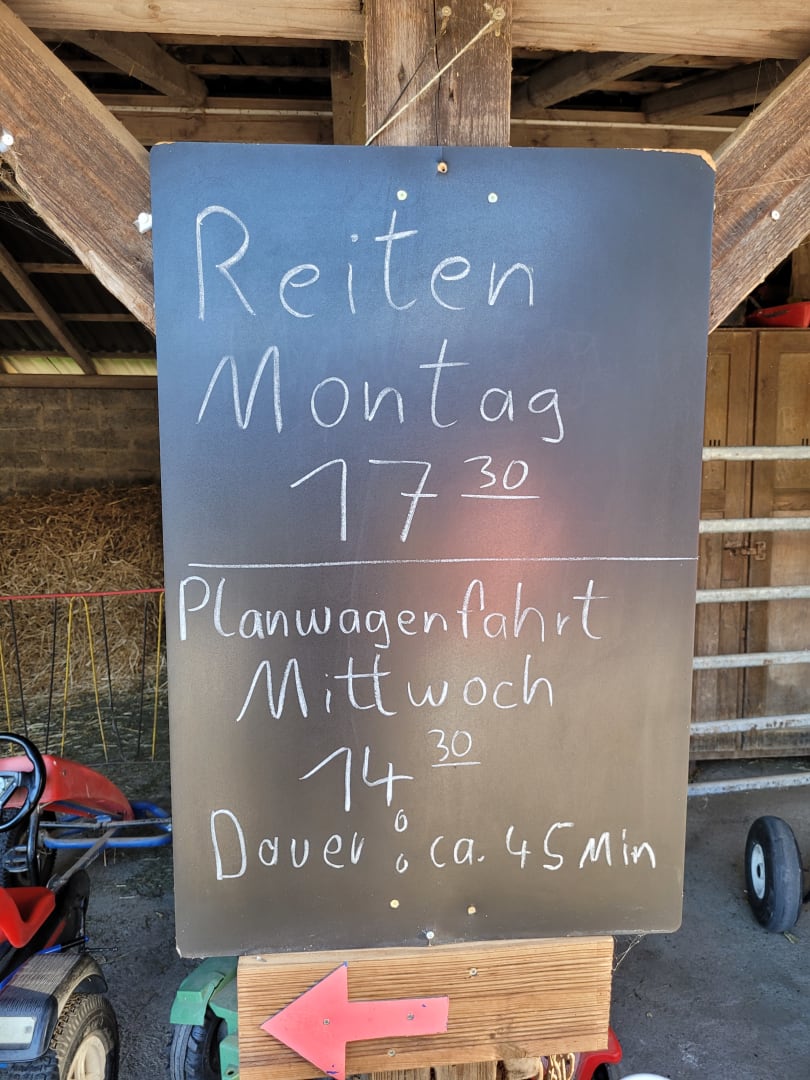 Reiten
Montag
17 30
Planwagenfahrt
Mittwoch
14 30
Dauer: ca. 45 Min